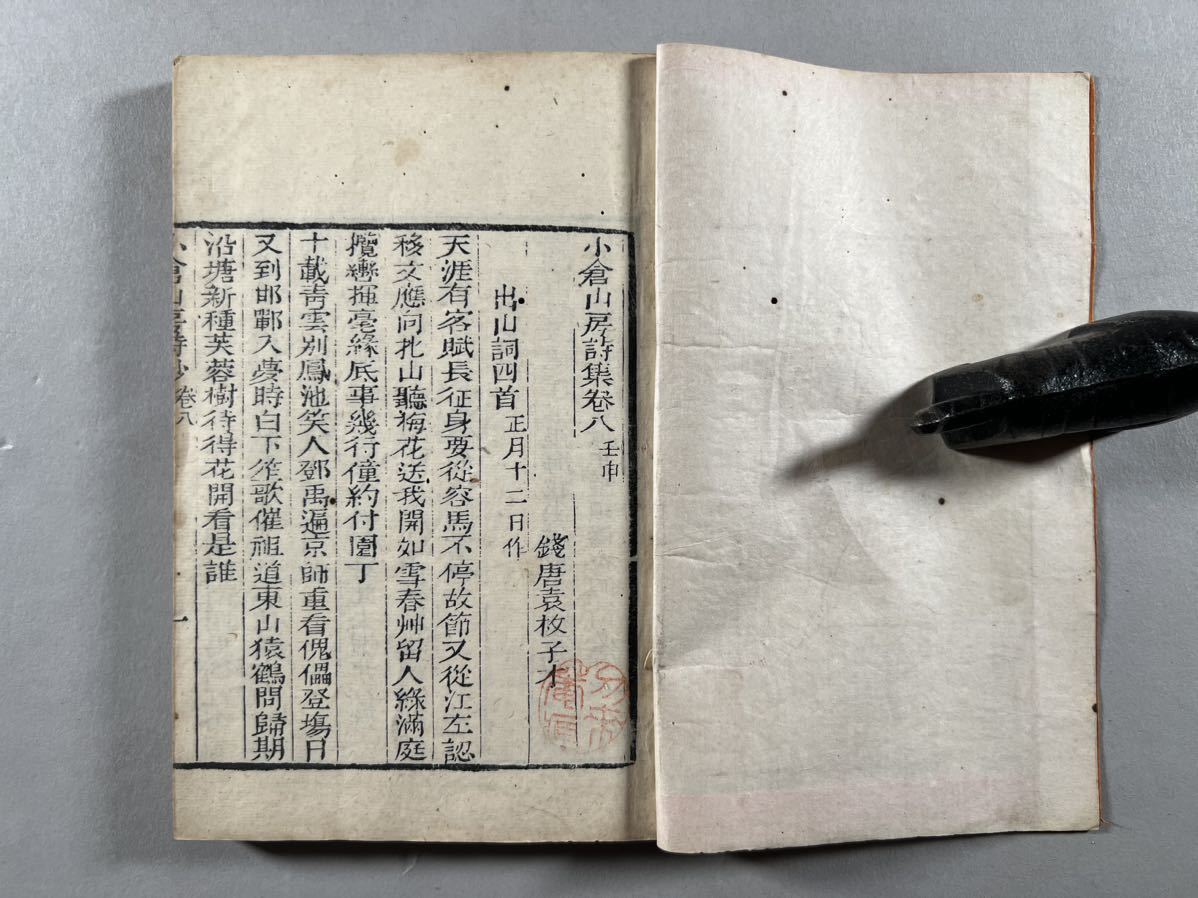 小倉山房詩集卷八 壬申
錢唐袁枚子才
出山詞四首 正月十二日作
天涯有客賦長征身要從容馬不停故節又從江左認
移文應向北山聽梅花送我開如雪春艸留人綠滿庭
攬轡揮毫緣底事幾行僮約付園丁
十載靑雲別鳳池笑人鄧禹遍京師重看傀儡登塲日
又到邯鄲入夢時白下笙歌催祖道東山猿鶴問歸期
沿塘新種芙蓉樹待得花開看是誰
小倉山房詩鈔 卷八 一